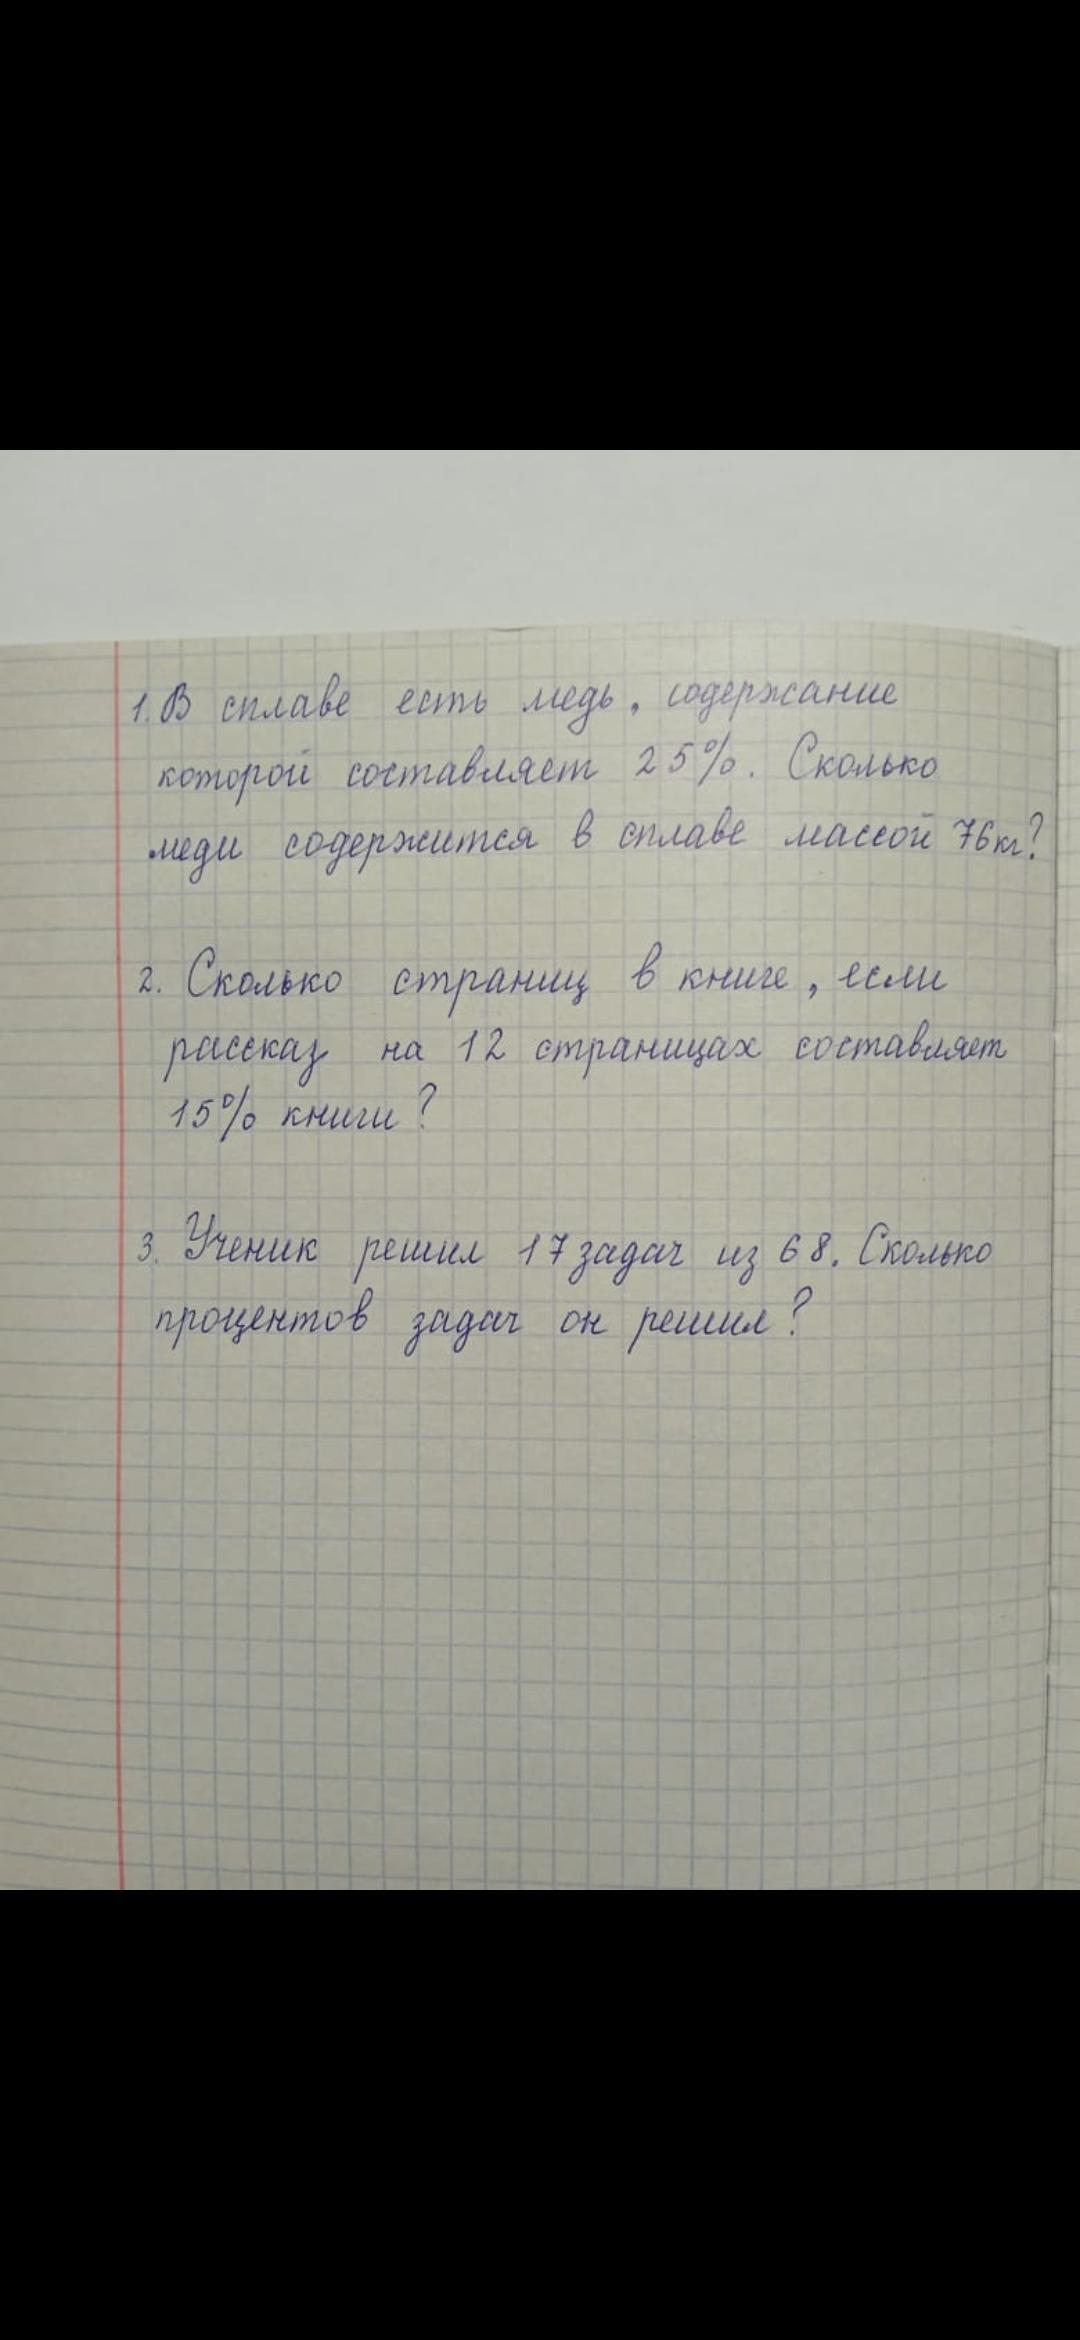 1. В сплаве есть медь, содержание
которой составляет 25%. Сколько
меди содержится в сплаве массой 76кг?
2. Сколько страниц в книге, если
рассказ на 12 страницах составляет
15% книги?
3. Ученик решил 17 задач из 68. Сколько
процентов задач он решил?